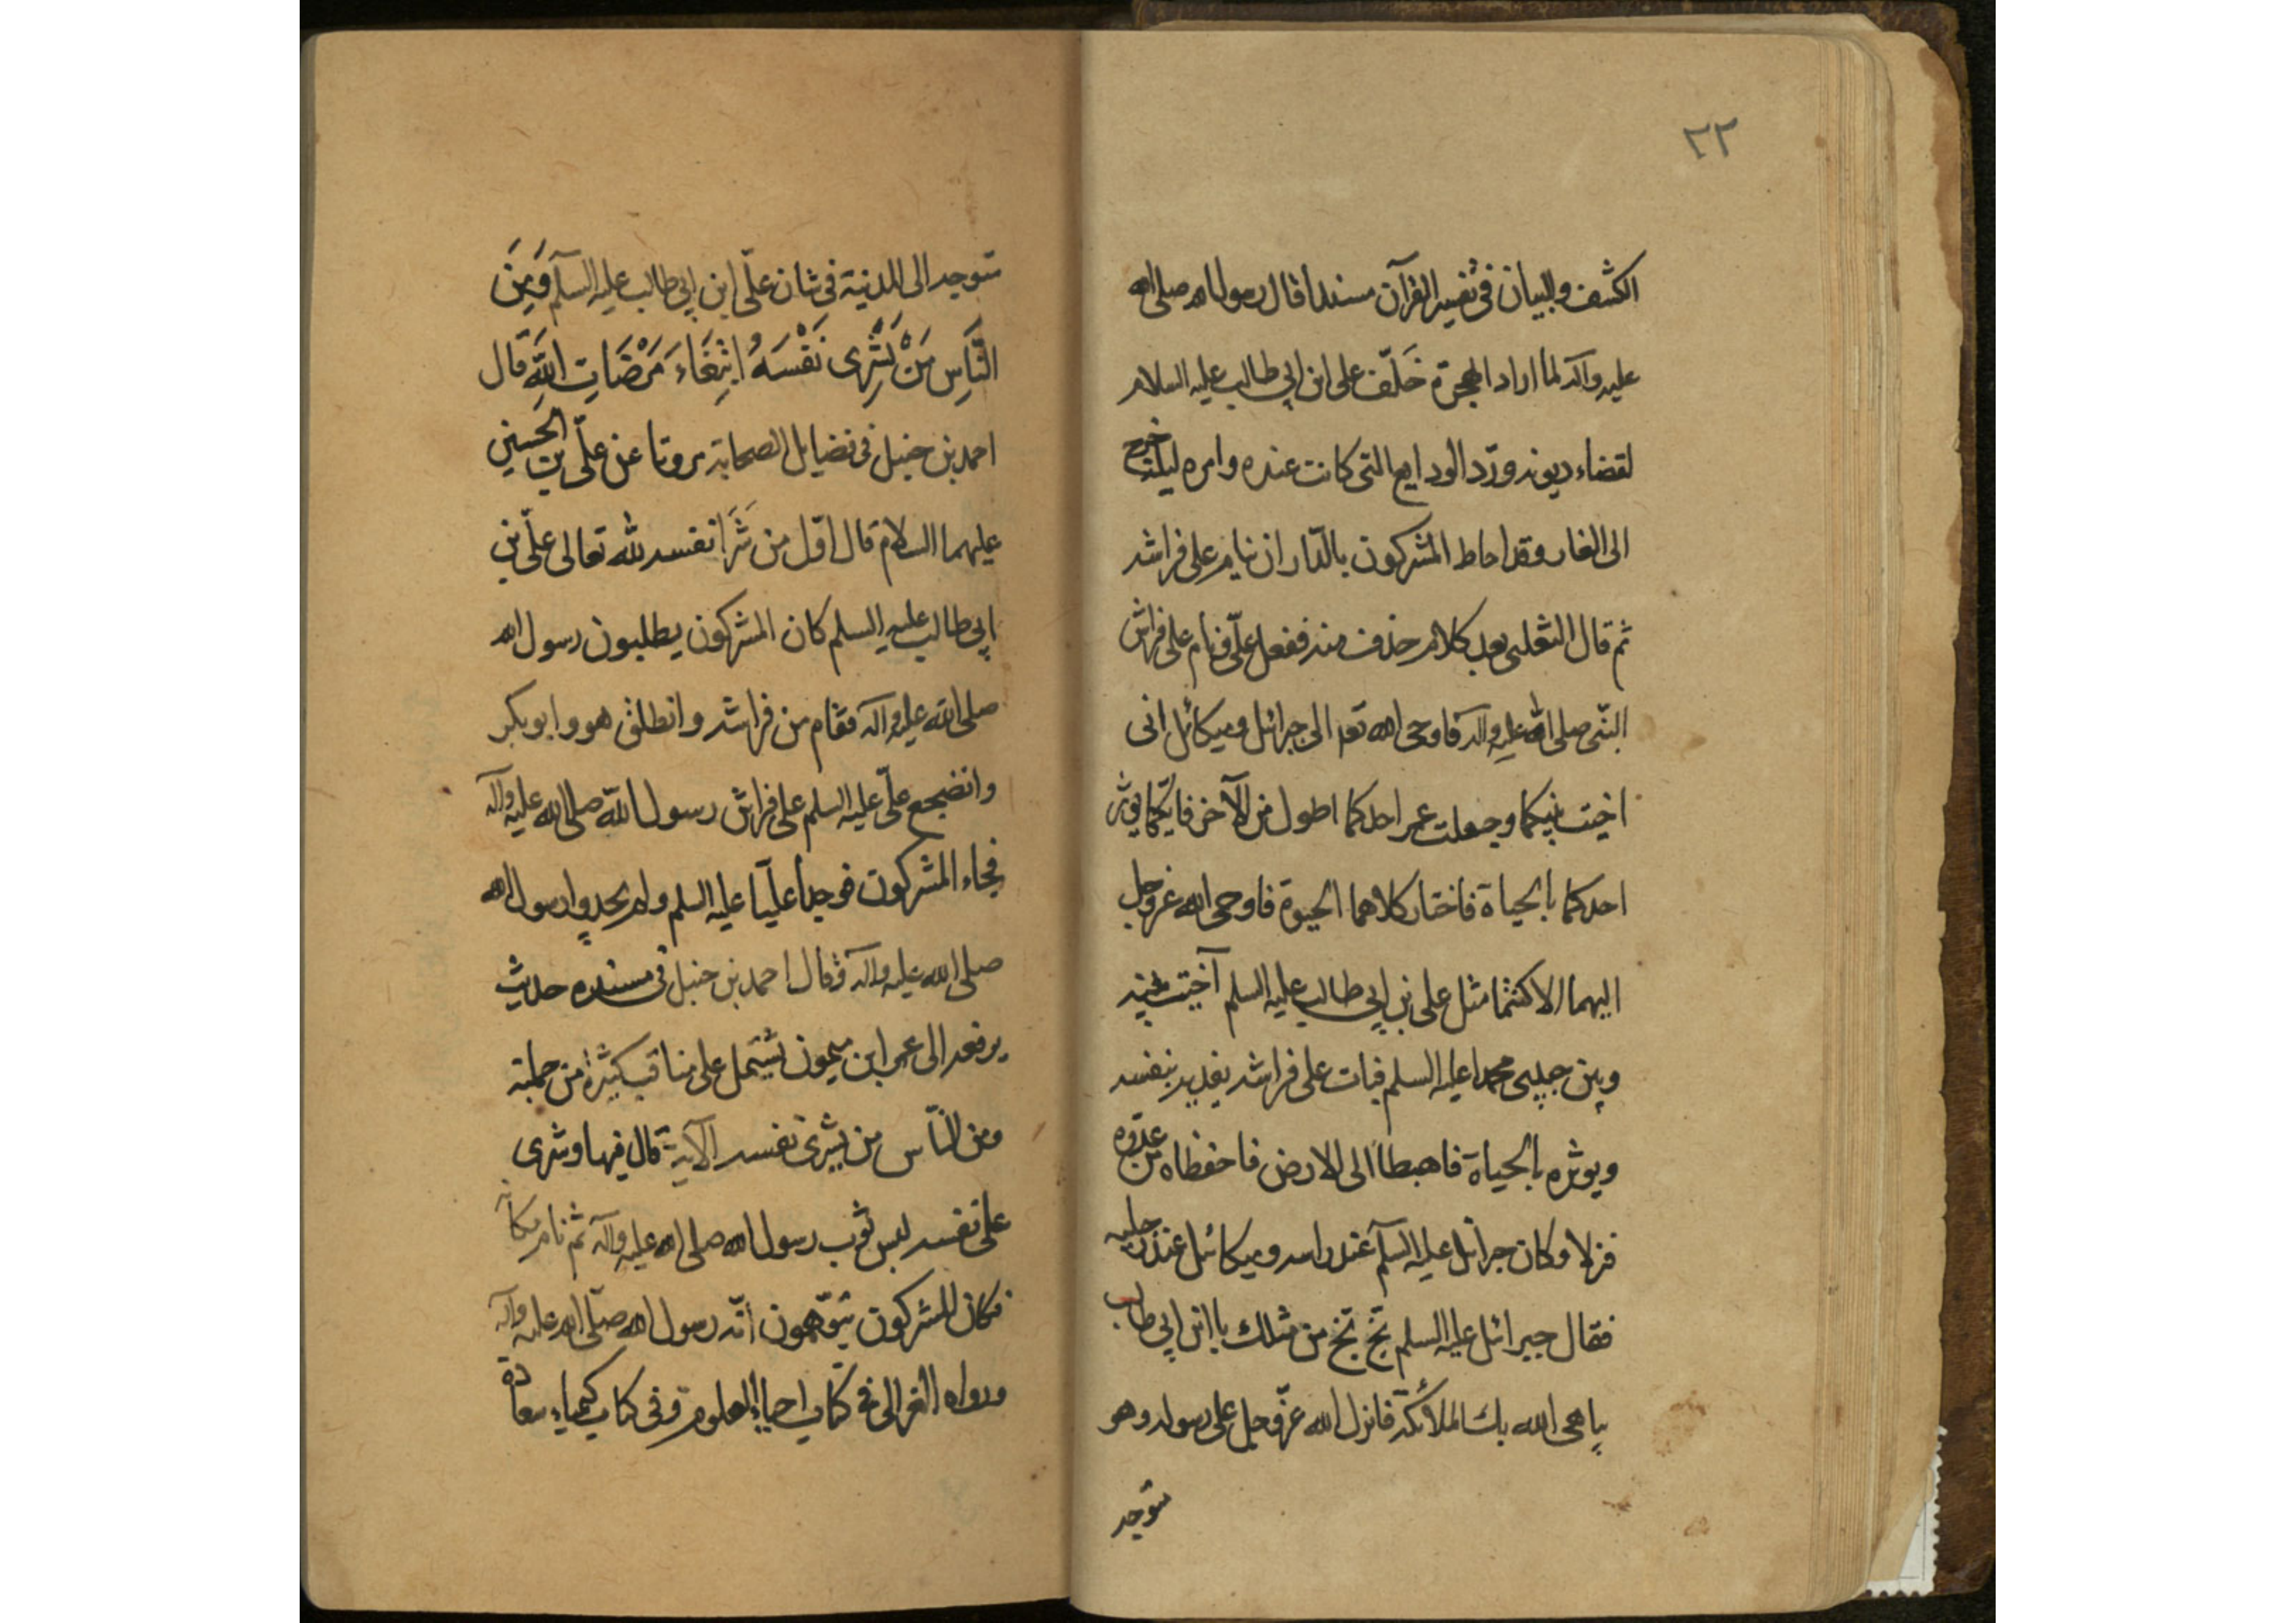 ٢٢
الكشف والبيان في تفسير القرآن مسندا قال رسول الله صلى الله
عليه وآله لما اراد الهجرة خَلّف على ابن ابي طالب عليه السلام
لقضاء ديونه وردّ الودايع التى كانت عنده وامره ليلة خرج
الى الغار وقد احاط المشركون بالدّار ان ينام على فراشه
ثم قال الثعلبى بعد كلام حذفت منه ففعل علىّ فنام على فراش
النّبى صلى الله عليه وآله فاوحى الله تعـ الى جبرائل وميكائل انى
اخيت بينكما وجعلت عمر احدكما اطول من الآخر فايّكما يوثر
احدكما بالحياة فاختار كلاهما الحيوة فاوحى الله عز وجل
اليهما الا كنتما مثل على بن ابي طالب عليه السلم آخيت بينه
وبين حبيبى محمد عليه السلم فبات على فراشه يفديه بنفسه
ويوثره بالحياة فاهبطا الى الارض فاحفظاه من عدّوه
فنزلا وكان جبرائل عليه السلم عند راسه وميكائيل عند رجليه
فقال جبرائل عليه السلم بخ بخ من مثلك يا ابن ابي طالب
يباهى الله بك الملائكة فانزل الله عزّ وجل على رسوله وهو
متوجه
متوجه الى المدينة في شان علىّ ابن ابي طالب عليه السلم وَمِنَ
النَّاسِ مَنْ يَشْرِى نَفْسَهُ ابْتِغَاءَ مَرْضَاتِ اللهِ قال
احمد بن حنبل في فضايل الصحابة عن علىّ بن الحسين
عليهما السلام قال اوّل من شَرَا نفسه لله تعالى علىّ بن
ابي طالب عليه السلم كان المشركون يطلبون رسول الله
صلى الله عليه وآله فقام من فراشه وانطلق هو وابو بكر
وانضجع علىّ عليه السلم على فراش رسول الله صلى الله عليه وآله
فجاء المشركون فوجدوا عليّا عليه السلم ولم يجدوا رسول الله
صلى الله عليه وآله وقال احمد بن حنبل في مسنده حديث
يرفعه الى عمر ابن ميمون يشتمل على مناقب كثيرة من جملته
ومن النّاس من يشرى نفسه الآية قال فيها وشرى
على نفسه لبس ثوب رسول الله صلى الله عليه وآله ثم نام مكانه
فكان المشركون يتوّهمون انّه رسول الله صلّى الله عليه وآله
ورواه الغزالى في كتاب احياء العلوم وفى كتاب كيمياء سعادة